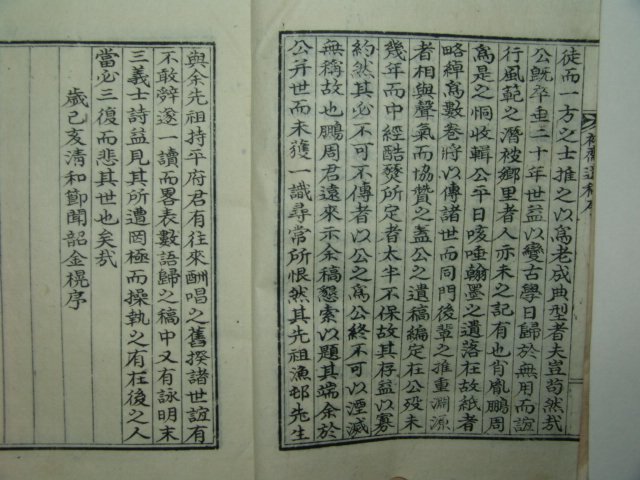 徒而一方之士推之以爲老成典型者夫豈苟然哉
公旣卒垂二十年世益以變古學日歸於無用而誼
行風範之潛被鄕里者人亦未之記有也肖胤鵬周
爲是之恫收輯公平日咳唾翰墨之遺落在故紙者
略繹爲數卷將以傳諸世而同門後輩之推重淵源
者相與聲氣而協贊之蓋公之遺稿編定在公歿未
幾年而中經酷發所定者太半不保故其存益以寡
約然其必不可不傳者以公之爲公終不可以湮滅
無稱故也鵬周君遠來示余稿懇索以題其端余於
公幷世而未獲一識尋常所恨然其先祖漁邨先生
與余先祖持平府君有往來酬唱之舊揆諸世誼有
不敢辭遂一讀而畧表數語歸之稿中又有詠明末
三義士詩益見其所遭罔極而操執之有在後之人
當必三復而悲其世也矣哉
歲己亥淸和節聞韶金榥序